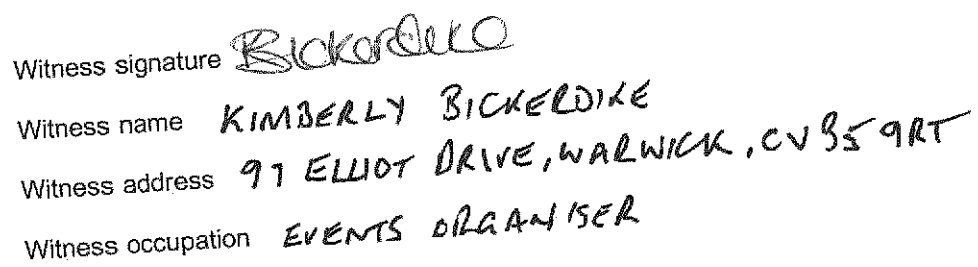 Witness signature Bickerdike
Witness name KIMBERLY BICKERDIKE
Witness address 97 ELLIOT DRIVE, WARWICK, CV35 9RT
Witness occupation EVENTS ORGANISER